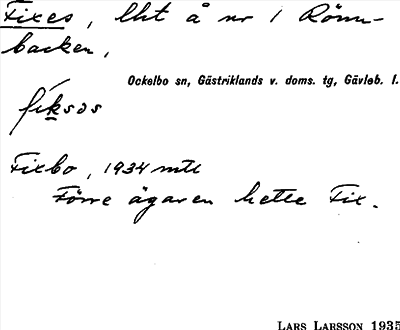 Fixes, lht å nr 1 Rönn-
backen,
Ockelbo sn, Gästriklands v. doms. tg, Gävleb. l.
fíksəs
Fixbo, 1934 mtl
Förre ägaren hette Fix.
LARS LARSSON 1935